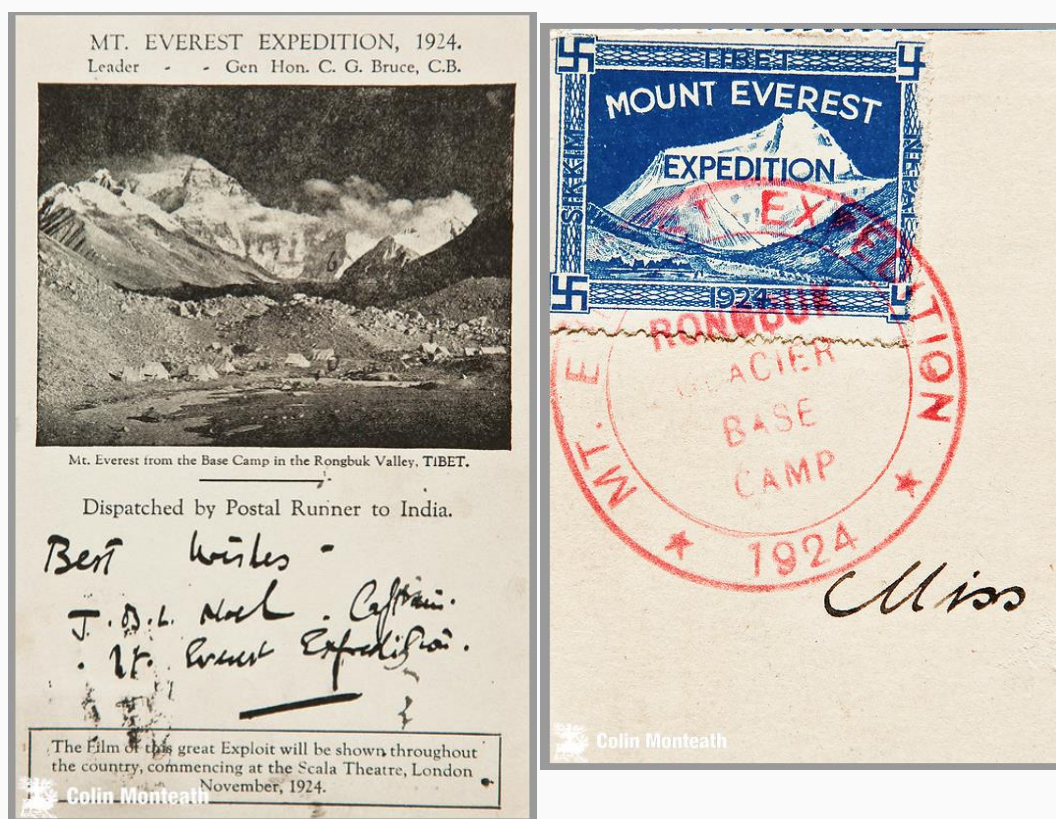 MT. EVEREST EXPEDITION, 1924.
Leader - - Gen Hon. C. G. Bruce, C.B.
Mt. Everest from the Base Camp in the Rongbuk Valley, TIBET.
Dispatched by Postal Runner to India.
Best Wishes -
J.B.L. Noel. Captain.
. Mt. Everest Expedition.
The Film of this great Exploit will be shown throughout
the country, commencing at the Scala Theatre, London
November, 1924.
Colin Monteath
TIBET
MOUNT EVEREST
EXPEDITION
SIKKIM
NEPAL
1924
MT. E T EXPEDITION
RONGBUK
GLACIER
BASE
CAMP
1924
Miss
Colin Monteath